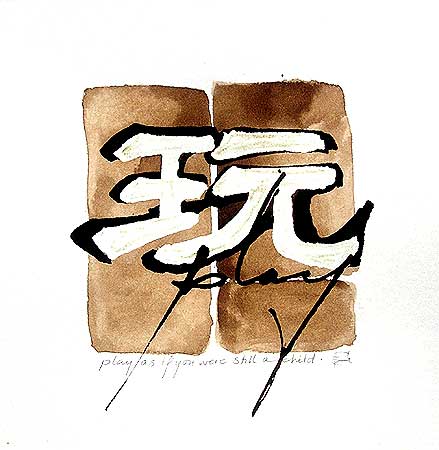 玩
play
play as if you were still a child.